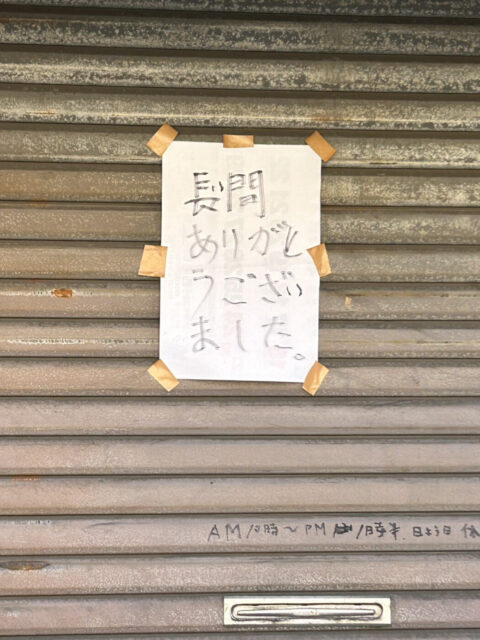 長い間
ありがと
うござい
ました。
AM10時〜PM1時半.日よう日 休